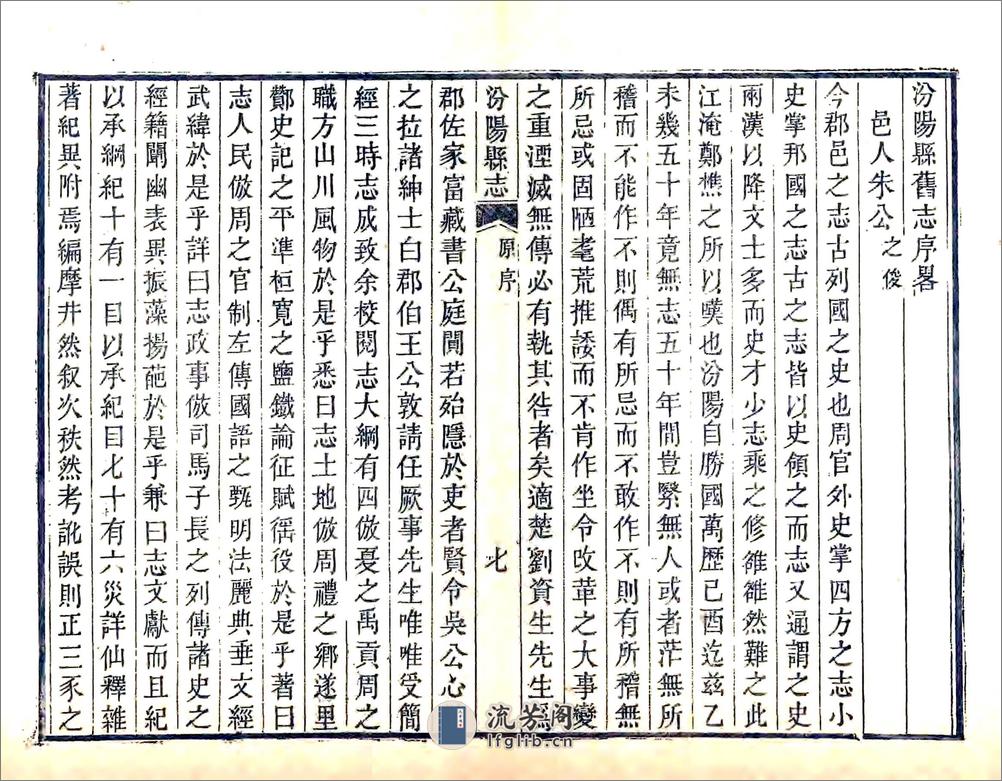 汾陽縣舊志序畧
邑人朱公之俊
今郡邑之志古列國之史也周官外史掌四方之志小
史掌邦國之志古之志皆以史領之而志又通謂之史
兩漢以降文士多而史才少志乘之修雖雖然難之此
江淹鄭樵之所以嘆也汾陽自勝國萬歷己酉迄茲乙
未幾五十年竟無志五十年間豈繄無人或者茫無所
稽而不能作不則偶有所忌而不敢作不則有所稽無
所忌或固陋耄荒推諉而不肯作坐令改革之大事變
之重湮滅無傳必有執其咎者矣適楚劉資生先生爲
汾陽縣志
原序
七
郡佐家富藏書公庭閴若殆隱於吏者賢令吳公心
之拉諸紳士白郡伯王公敦請任厥事先生唯唯受簡
經三時志成致余校閱志大綱有四倣夏之禹貢周之
職方山川風物於是乎悉曰志土地倣周禮之鄉遂里
酇史記之平準桓寬之鹽鐵論征賦徭役於是乎著曰
志人民倣周之官制左傳國語之甄明法麗典垂文經
武緯於是乎詳曰志政事倣司馬子長之列傳諸史之
經籍闡幽表異振藻揚葩於是乎兼曰志文獻而且紀
以承綱紀十有一目以承紀目七十有六災詳仙釋雜
著紀異附焉編摩井然叙次秩然考訛誤則正三豕之
流芳阁
lfglib.cn